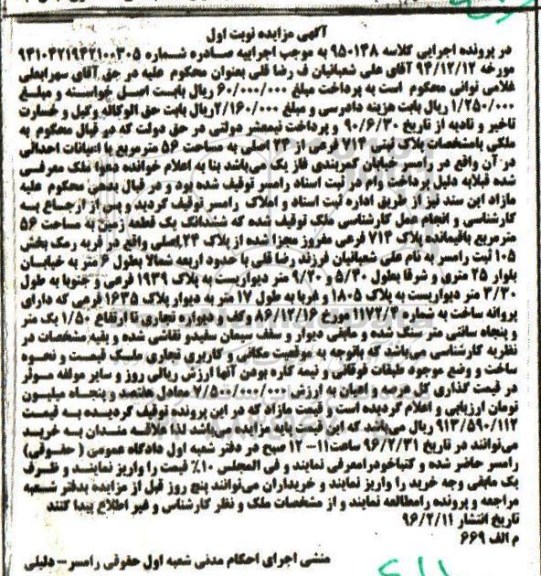 آگهی مزایده نوبت اول
در پرونده اجرایی کلاسه ۹۵۰۱۴۸ به موجب اجراییه صادره شماره ۹۳۱۰۴۲۱۹۴۲۱۰۰۳۰۵
مورخه ۹۴/۱۲/۱۲ آقای علی شعبانیان ف رضا قلی بعنوان محکوم علیه در حق آقای سهرابعلی
غلامی توانی محکوم است به پرداخت مبلغ ۶۰/۰۰۰/۰۰۰ ریال بابت اصل خواسته و مبلغ
۱/۲۵۰/۰۰۰ ریال بابت هزینه دادرسی و مبلغ ۲/۱۶۰/۰۰۰ ریال بابت حق الوکاله وکیل و خسارت
تاخیر و تادیه از تاریخ ۹۰/۶/۳۰ و پرداخت نیمعشر دولتی در حق دولت که در قبال محکوم به
ملکی بامشخصات پلاک ثبتی ۷۱۴ فرعی از ۲۳ اصلی به مساحت ۵۶ مترمربع با اعیانات احداثی
در آن واقع در رامسر خیابان کمربندی فاز یک می‌باشد بنا به اعلام خوانده دعوا ملک معرفی
شده قبلابه دلیل پرداخت وام در ثبت اسناد رامسر توقیف شده بود و در قبال بدهی محکوم علیه
مازاد این سند نیز از طریق اداره ثبت اسناد و املاک رامسر توقیف گردید پس از ارجاع به
کارشناسی و انجام عمل کارشناسی ملک توقیف شده که ششدانگ یک قطعه زمین به مساحت ۵۶
مترمربع باقیمانده پلاک ۷۱۴ فرعی مفروز مجزا شده از پلاک ۲۳ اصلی واقع در قریه رمک بخش
۱۰۵ ثبت رامسر به نام علی شعبانیان فرزند رضا قلی با حدود اربعه شمالا بطول ۶ متر به خیابان
بلوار ۲۵ متری و شرقا بطول ۵/۳۰ و ۹/۲۰ متر دیواریست به پلاک ۱۹۳۹ فرعی و جنوبا به طول
۳/۳۰ متر دیواریست به پلاک ۱۸۰۵ و غربا به طول ۱۷ متر به دیوار پلاک ۱۶۳۵ فرعی که دارای
پروانه ساخت به شماره ۱۱۷۲/۲ مورخ ۸۶/۱۲/۱۶ وکف و دیواره تجاری تا ارتفاع ۱/۵۰ یک متر
و پنجاه سانتی متر سنگ شده و مابقی دیوار و سقف سیمان سفیدو نقاشی شده و بقیه مشخصات در
نظریه کارشناسی می‌باشد که باتوجه به موقعیت مکانی و کاربری تجاری ملک قیمت و نحوه
ساخت و وضع موجود طبقات فوقانی و نیمه کاره بودن آنها ارزش ریالی روز و سایر مولفه موثر
در قیمت گذاری کل عرصه و اعیان به ارزش ۷/۵۰۰/۰۰۰/۰۰۰ معادل هفتصد و پنجاه میلیون
تومان ارزیابی و اعلام گردیده است و قیمت مازاد که در این پرونده توقیف گردیده به قیمت
۹۱۳/۵۹۰/۱۱۲ ریال می‌باشد که این قیمت پایه مزایده می‌باشد لذا علاقه مندان به خرید
می‌توانند در تاریخ ۹۶/۲/۳۱ ساعت ۱۱-۱۲ صبح در دفتر شعبه اول دادگاه عمومی (حقوقی)
رامسر حاضر شده و کتباخودرامعرفی نمایند و فی المجلس ۱۰٪ قیمت را واریز نمایند و ظرف
یک مابقی وجه خرید را واریز نمایند و خریداران می‌توانند پنج روز قبل از مزایده بدفتر شعبه
مراجعه و پرونده رامطالعه نمایند و از مشخصات ملک و نظر کارشناس و غیر اطلاع پیدا کنند
تاریخ انتشار ۹۶/۲/۱۱
م الف ۶۶۹
منشی اجرای احکام مدنی شعبه اول حقوقی رامسر – دلیلی